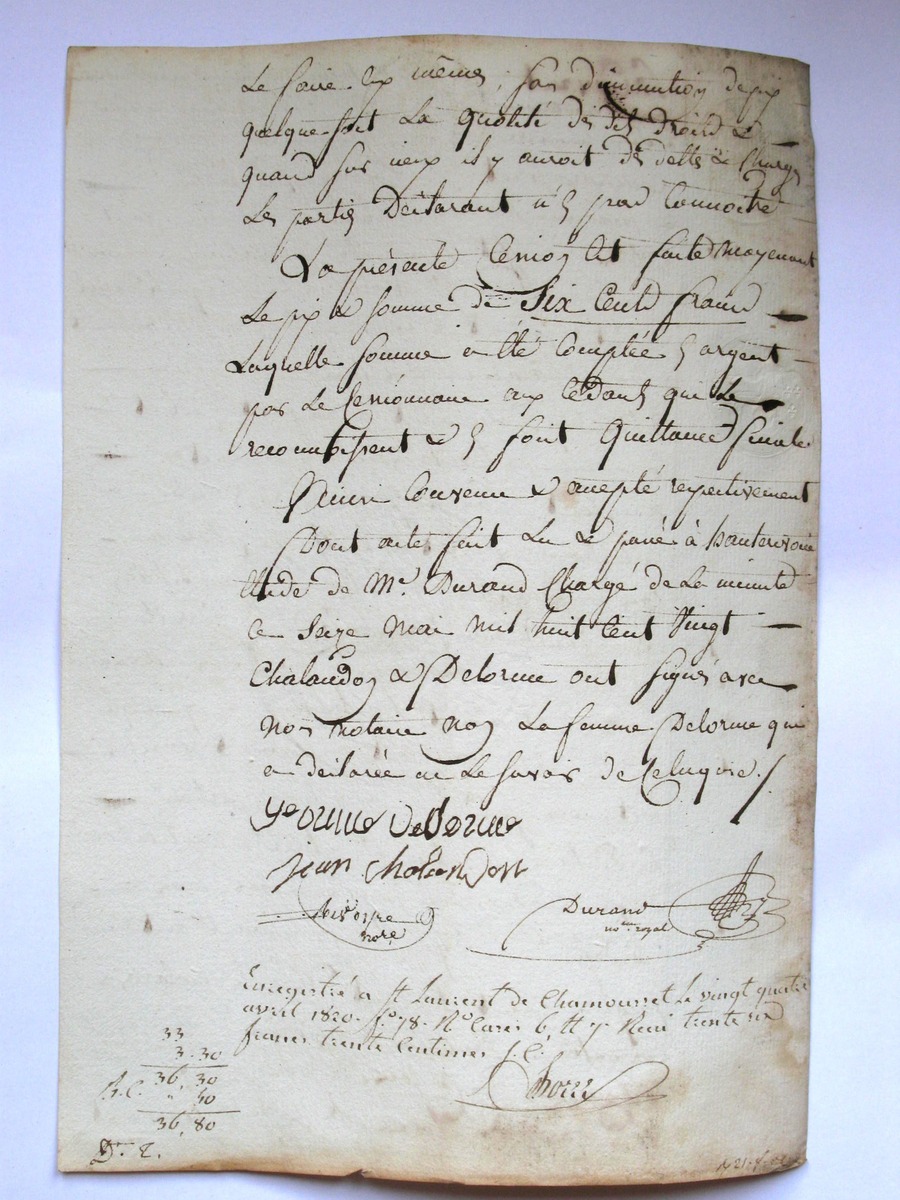 Le faire eux mêmes, sans diminution de prix
quelque soit La qualité des dits droits &
quand sur iceux il y auroit des dettes & charges
Les parties Déclarant n'en pas Connoitre
La présente Cession est faite moyenant
Le prix & somme de Six Cents francs
Laquelle somme a été Comptée en argent
par Le Cessionnaire aux Cédants qui Le
reconnoissent & en font Quittance finale
Ainsi Convenu & accepté respectivement
Dont acte fait Lu & passé à
Etude de Me. Durand Chargé de La minute
Le Seize Mai Mil huit Cent Vingt
Chalandon & Delorme ont signés avec
nos notaire non La femme Delorme qui
a déclarée ne Le savoir de Ce Enquise ./
Delorme
jean Chalandon
nore
Durand
nore royal
Enregistré a St Laurent de Chamousset Le vingt quatre
avril 1820. fo. 78. Ro Cases 6 et 7. Reçu trente six
francs trente Centimes J. C.
33
3.30
36,30
" 50
36,80
Dr. 2.